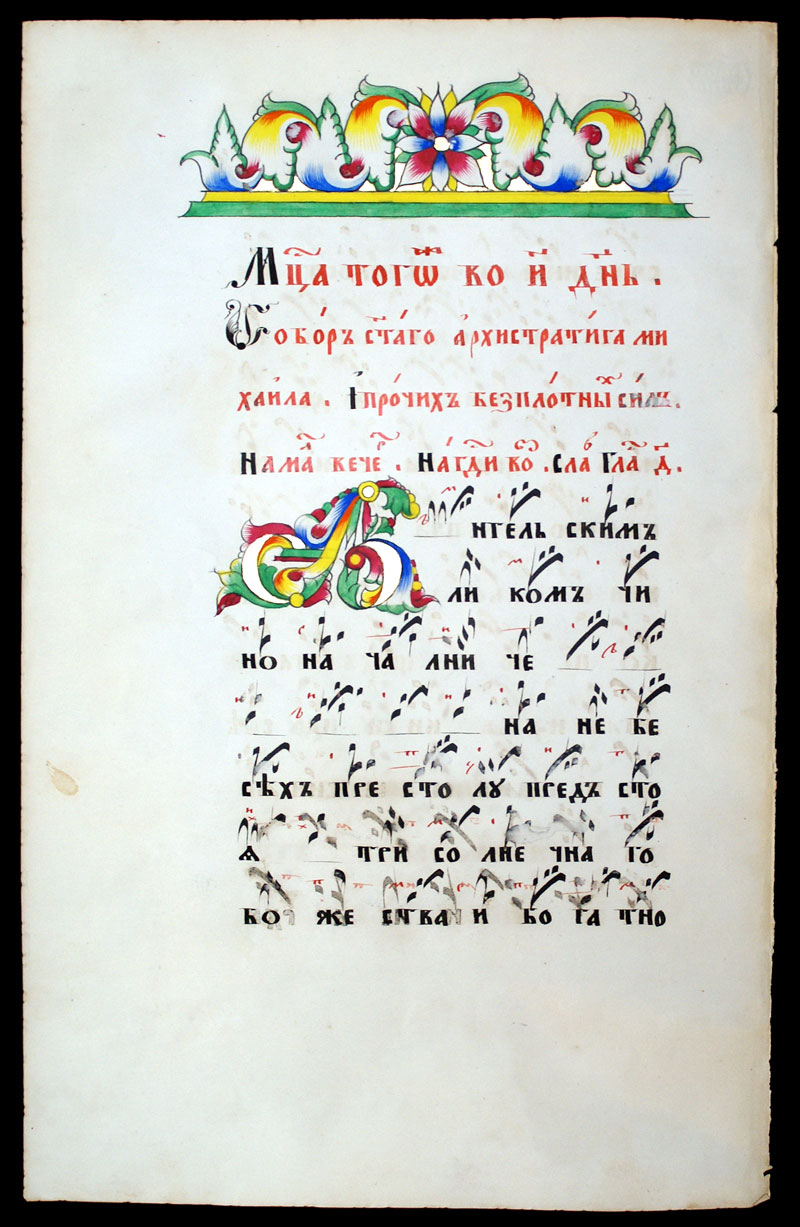 Мц҃а тогѡ́ж ко и҃ дн҃ь .
Собо́ръ ст҃а́го а҆рхистрати́га ми
хаи́ла . І҆про́чихъ безпло́тныⷯ си́лъ.
Нама́л вечеⷬ . На́гд҇и воⷥ . сла Гла́ д҃ .
А нгель скимъ
ли комъ чи
но на ча лни че
на не бе
сѣхъ пре сто лу предъ сто
ѧ три со лне чна го
бо же ства и бо га тно